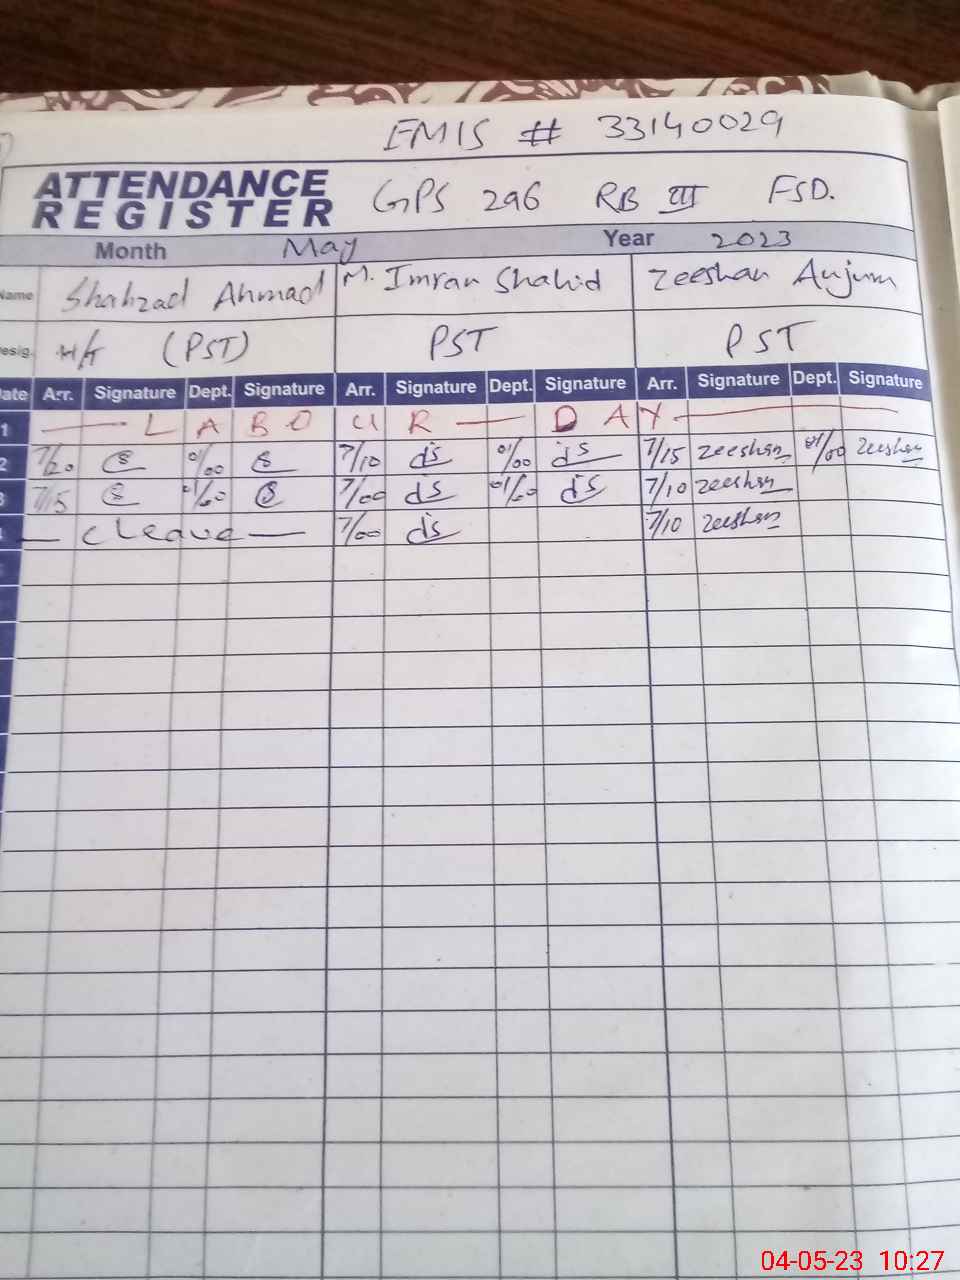 EMIS # 33140029
ATTENDANCE REGISTER GPS 296 RB III FSD.
Month May Year 2023
Name Shahzad Ahmad M. Imran Shahid Zeeshan Anjum
Desig. H/T (PST) PST PST
Date Arr. Signature Dept. Signature Arr. Signature Dept. Signature Arr. Signature Dept. Signature
1 L A B O U R — D A Y
2 7/20 01/00 7/10 01/00 7/15 zeeshan 01/00 zeeshan
3 7/15 01/00 7/00 01/00 7/10 zeeshan
4 — C leave — 7/00 7/10 zeeshan
04-05-23 10:27